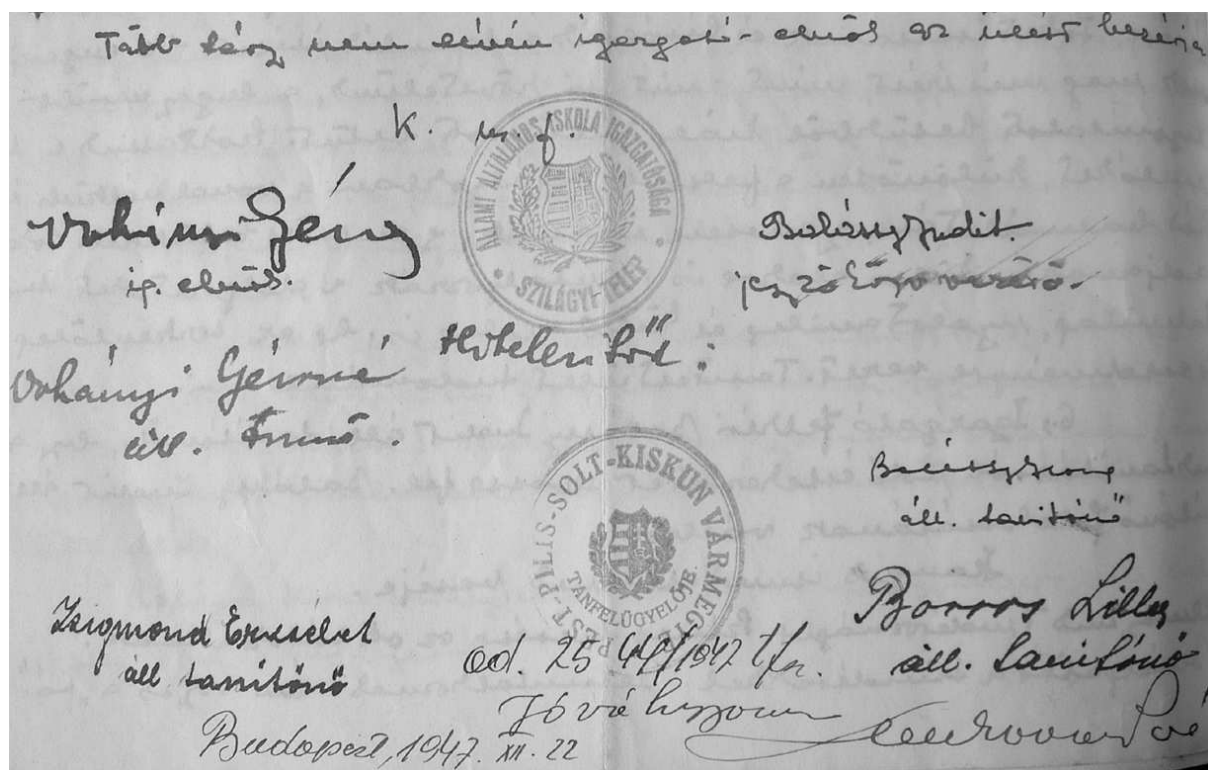 Több tárgy nem lévén igazgató-elnök az ülést bezárja
K. m. f.
ÁLLAMI ÁLTALÁNOS ISKOLA IGAZGATÓSÁGA
SZILÁGYI-TELEP
Vohányi Géza
ig. elnök.
Balássy Judit.
jegyzőkönyvvezető.
Hitelesítők:
Vohányi Gézáné
áll. tanítónő.
PEST-PILIS-SOLT-KISKUN VÁRMEGYE
TANFELÜGYELŐJE
áll. tanítónő
Zsigmond Erzsébet
áll tanítónő
Boross Lilly
áll. tanítónő
1947 t/fü.
Jóváhagyom
Budapest, 1947. XII. 22